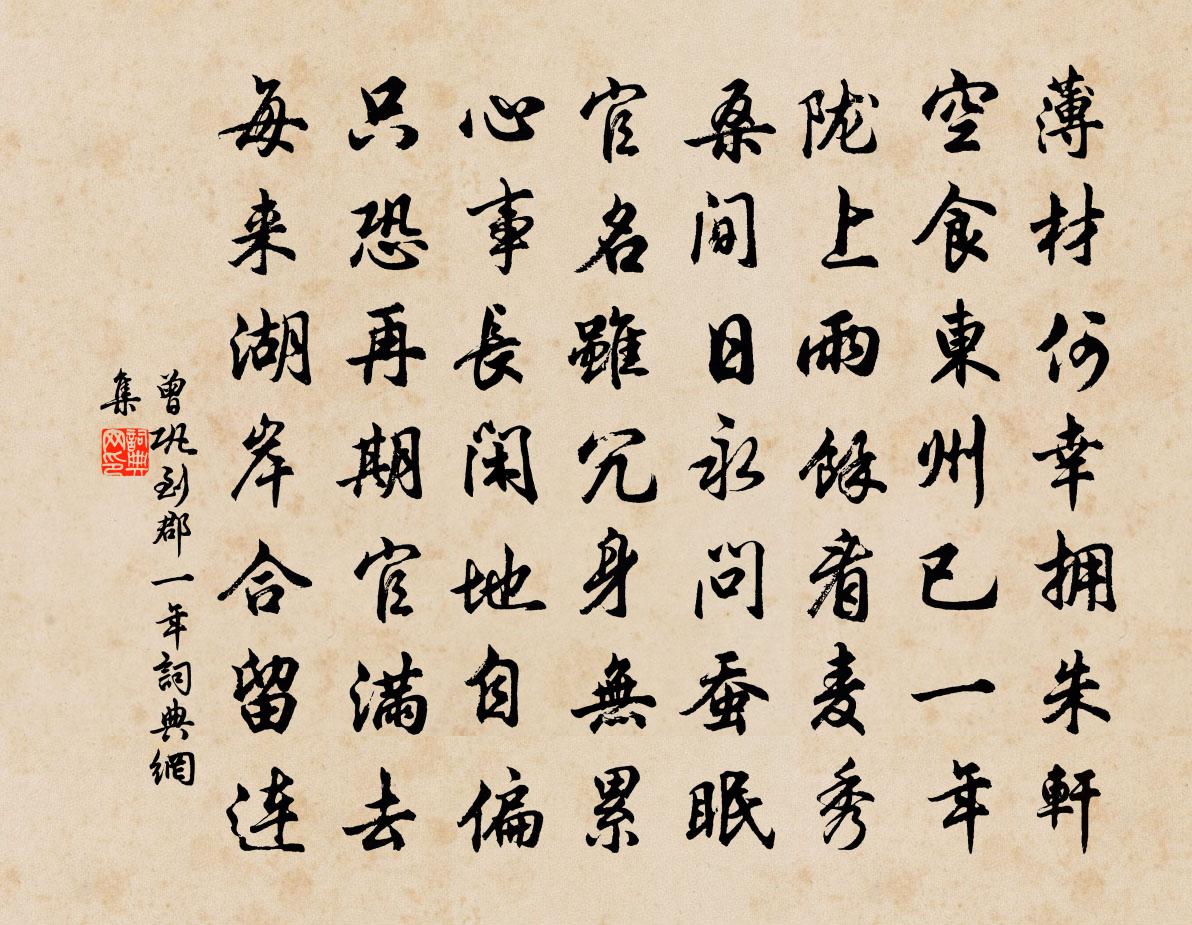 薄材何幸拥朱軒
空食東州已一年
陇上雨餘看麦秀
桑间日永问蚕眠
官名雖冗身無累
心事長闲地自偏
只恐再期官满去
每来湖岸合留连
曾巩到郡一年詞典網
集
詞典
网印